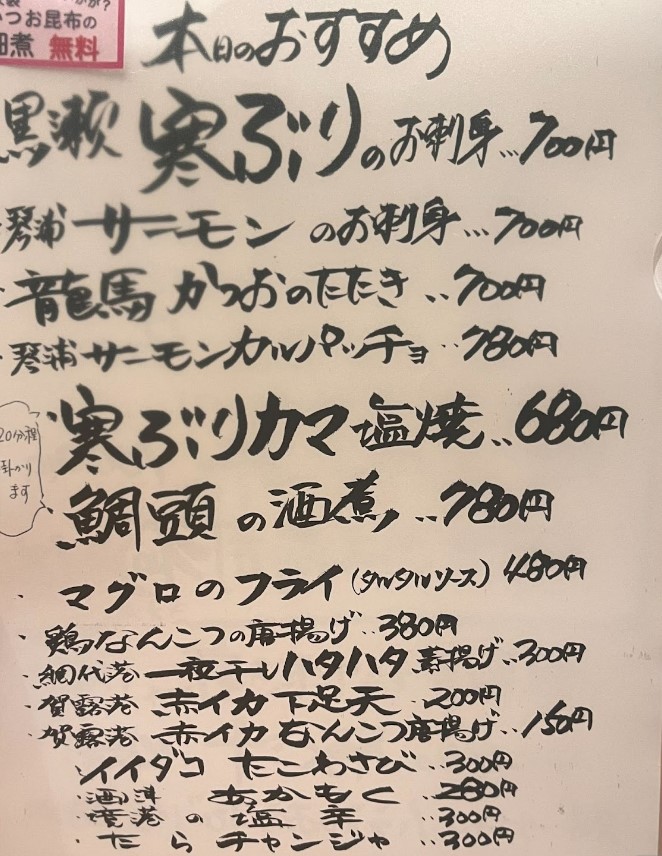 かつお昆布の
佃煮 無料
本日のおすすめ
黒瀬 寒ぶりのお刺身…700円
・琴浦サーモンのお刺身…700円
・龍馬かつおのたたき‥700円
・琴浦サーモンカルパッチョ‥780円
寒ぶりカマ塩焼‥680円
20分程
掛かり
ます
鯛頭の酒煮‥780円
・マグロのフライ(タルタルソース)480円
・鶏なんこつの唐揚げ‥380円
・網代港一夜干しハタハタ素揚げ‥300円
・賀露港 赤イカ下足天‥200円
・賀露港 赤イカなんこつ唐揚げ‥150円
・イイダコ たこわさび‥300円
あかもく‥280円
境港の塩辛‥300円
・たらチャンジャ‥300円